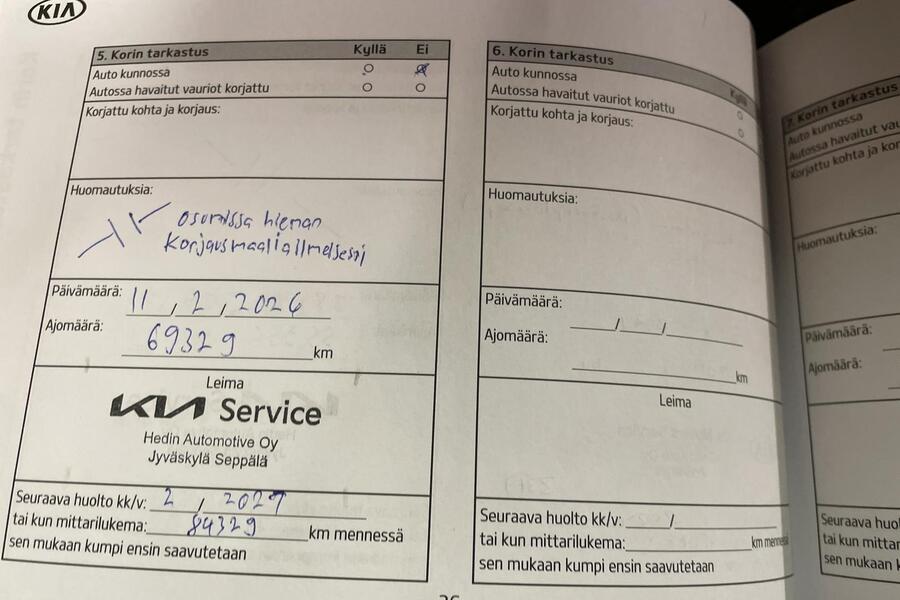 KIA
5. Korin tarkastus Kyllä Ei
Auto kunnossa
Autossa havaitut vauriot korjattu
Korjattu kohta ja korjaus:
Huomautuksia:
hieman
Päivämäärä: 11 / 2 / 2026
Ajomäärä: 69329 km
Leima
KIA Service
Hedin Automotive Oy
Jyväskylä Seppälä
Seuraava huolto kk/v: 2 / 2027
tai kun mittarilukema: 84329 km mennessä
sen mukaan kumpi ensin saavutetaan
6. Korin tarkastus Kyllä
Auto kunnossa
Autossa havaitut vauriot korjattu
Korjattu kohta ja korjaus:
Huomautuksia:
Päivämäärä: / /
Ajomäärä: km
Leima
Seuraava huolto kk/v: /
tai kun mittarilukema: km
sen mukaan kumpi ensin saavutetaan
7. Korin tarkastus
Auto kunnossa
Autossa havaitut
Korjattu kohta ja
Huomautuksia:
Päivämäärä:
Ajomäärä:
Seuraava
tai kun
sen mukaan